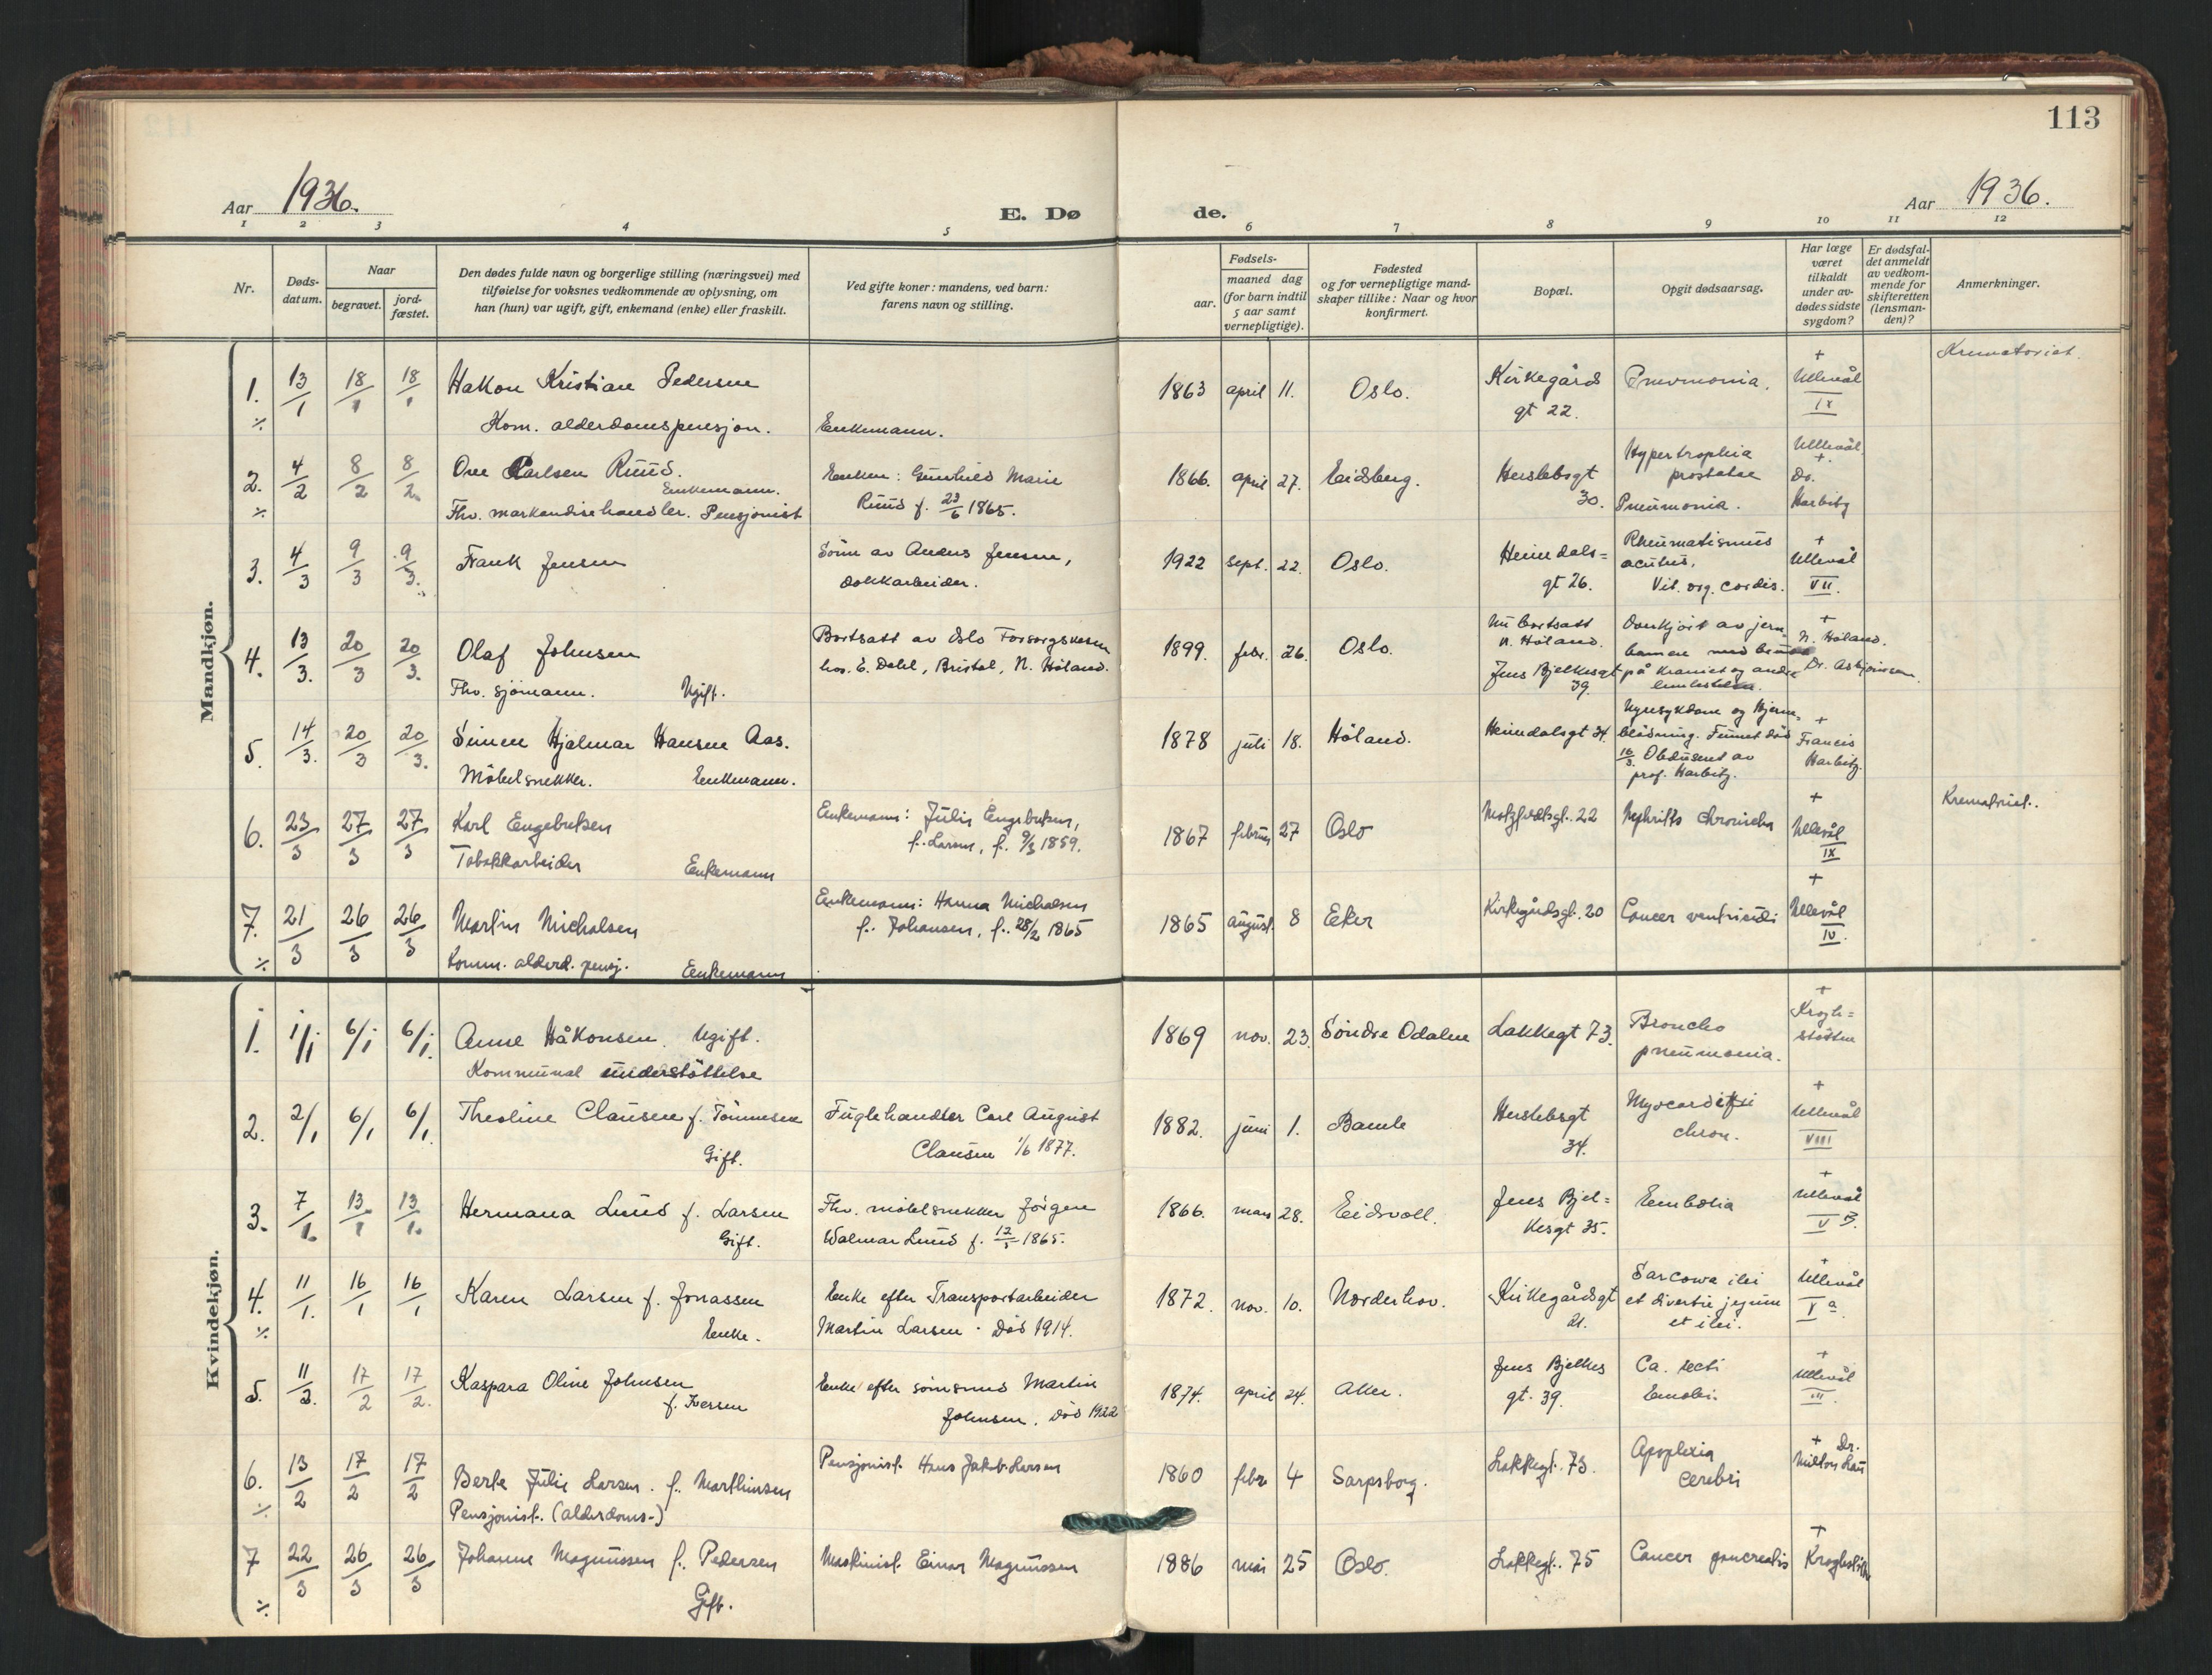 113
Aar 1936.
E. Døde.
Aar 1936.
1 2 3 4 5 6 7 8 9 10 11 12
Nr.
Dødsdatum.
Naar
begravet.
jordfæstet.
Den dødes fulde navn og borgerlige stilling (næringsvei) med
tilføielse for voksnes vedkommende av oplysning, om
han (hun) var ugift, gift, enkemand (enke) eller fraskilt.
Ved gifte koner: mandens, ved barn:
farens navn og stilling.
Fødsels-
aar.
maaned dag
(for barn indtil
5 aar samt
vernepligtige).
Fødested
og for vernepligtige mand-
skaper tillike: Naar og hvor
konfirmert.
Bopæl.
Opgit dødsaarsag.
Har læge
været
tilkaldt
under av-
dødes sidste
sygdom?
Er dødsfal-
det anmeldt
av vedkom-
mende for
skifteretten
(lensman-
den)?
Anmerkninger.
Mandkjøn.
1. 13/1 18/1 18/1 Håkon Kristian Pedersen
Kom. alderdomspensjon. Enkemann.
1863 april 11. Oslo. Kirkegård
gt 22. Pneumonia. + Ullevål
IX Krematoriet.
2. 4/2 8/2 8/2. Ove Carlsen Ruud.
Enkemann.
Fhv. markandisehandler. Pensjonist
Enken: Gunhild Marie
Ruud f. 23/6 1865.
1866. april 27. Eidsberg. Herslebsgt
30. Hypertrophia
prostatae
Pneumonia. Ullevål
+. Dr.
Harbitz
3. 4/3 9/3 9/3. Frank Jensen
Sönn av Anders Jensen,
dokkarbeider.
1922 sept. 22. Oslo. Heimdals=
gt 26. Rheumatismus
acutus.
Vit. org. cordis. + Ullevål
VII.
4. 13/3. 20/3 20/3. Olaf Johnsen
Fhv. sjömann. Ugift.
Bortsatt av Oslo Forsorgsvesen
hos. E. Dahl, Bristol, N. Höland.
1899. febr. 26. Oslo. Nu bortsatt
N. Höland.
Jens Bjelkesgt
39. Overkjört av jern-
banen med brudd
på kraniet og andre
+ N. Höland.
Dr. Asbjörnsen
5. 14/3. 20/3 20/3. Simen Hjalmar Hansen Aas.
Möbelsnekker. Enkemann.
1878 juli 18. Höland. Heimdalsgt 34. Nyresykdom og Hjerne-
blödning. Funnet död
16/3. Obdusent av
prof. Harbitz. + Francis
Harbitz.
6. 23/3 27/3 27/3 Karl Engebretsen
Tobakkarbeider Enkemann
Enkemann: Julie Engebretsen,
f. Larsen, f. 9/3 1859.
1867 februar 27 Oslo Motzfeldtsgt. 22 Nephritis chronicha + Ullevål
IX Krematoriet.
7. 21/3 26/3 26/3 Martin Nicholsen
Komm. alderd. pensj. Enkemann
Enkemann: Hanna Nicholsen
f. Johansen, f. 28/2 1865
1865 august. 8 Eker Kirkegårdsgt. 20 Cancer ventriculi + Ullevål
IV.
Kvindekjøn.
1. 1/1. 6/1 6/1. Anne Håkonsen. Ugift.
Kommunal understöttelse
1869 nov. 23. Söndre Odalen Lakkegt 73. Broncho
pneumonia. + Krogh=
stötten
2. 2/1 6/1 6/1. Theoline Clausen f. Tönnesen
Gift.
Fuglehandler Carl August
Clausen 1/6 1877.
1882. juni 1. Bamle Herslebsgt
34. Myocarditis
chron. + Ullevål
VIII
3. 7/1. 13/1 13/1. Hermana Lund f. Larsen
Gift.
Fhv. möbelsnekker Jörgen
Walmar Lund f. 12/5 1865.
1866. mars 28. Eidsvoll. Jens Bjel=
kesgt 35. Embolia + Ullevål
V B.
4. 11/1. 16/1 16/1 Karen Larsen f. Jonassen
Enke.
Enke efter Transportarbeider
Martin Larsen. Död 1914.
1872. nov. 10. Norderhov. Kirkegårdsgt
21. Sarcoma ilei
et ilei. + Ullevål
V a
5. 11/2. 17/2 17/2. Kaspara Oline Johnsen
f. Iversen
Enke efter sömsmed Martin
Johnsen. Död 1922
1874. april 24. Aker. Jens Bjelkes
gt. 39. Ca. recti
Emboli. + Ullevål
III.
6. 13/2 17/2 17/2 Berte Julie Larsen. f. Marthinsen
Pensjonist. (alderdoms-)
Pensjonist. Hans Jakob Larsen
1860 febr 4 Sarpsborg. Lakkegt. 73. Apoplexia
cerebri + Dr.
7 22/3 26/3 26/3 Johanne Magnussen f. Pedersen
Gift.
Maskinist. Einar Magnussen
1886 mai 25 Oslo. Lakkegt. 75 Cancer pancreatis + Kroghstötten